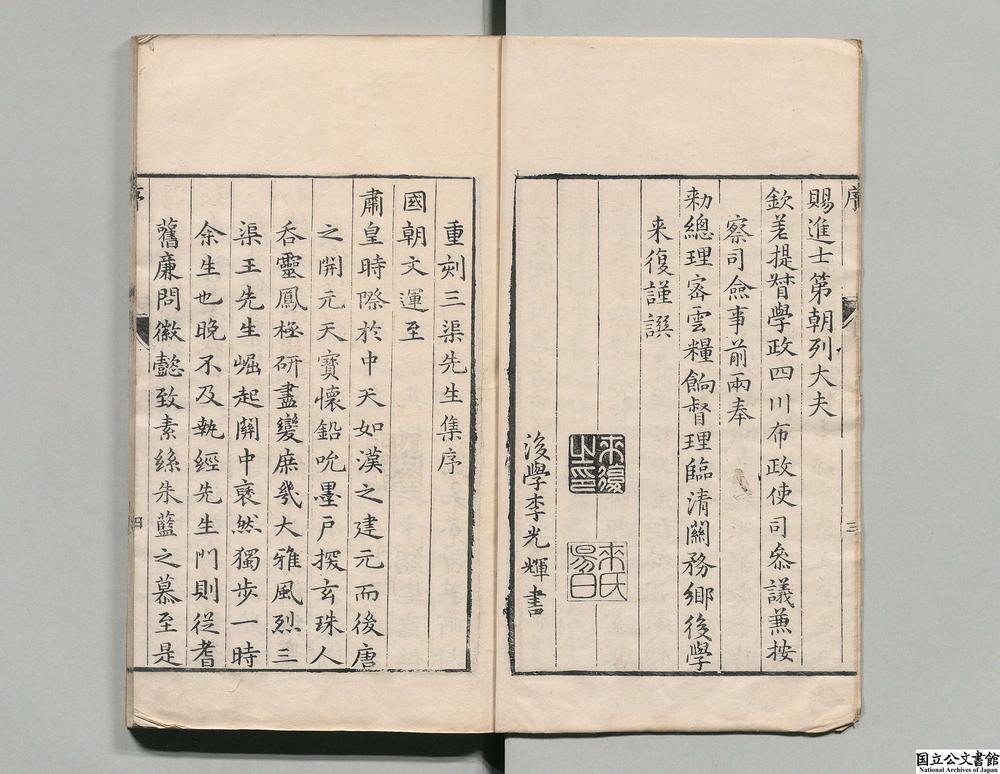 序
賜進士第朝列大夫
欽差提督學政四川布政使司叅議蒹按
察司僉事前兩奉
勑總理密雲糧餉督理臨清關務鄉後學
来復謹譔
来復之印
来氏昜曰
後學李光輝書
三
重刻三渠先生集序
國朝文運至
肅皇時際於中天如漢之建元而後唐
之開元天寶懷鉛吮墨戶探玄珠人
吞靈鳳極研盡變庶幾大雅風烈三
渠王先生崛起關中裒然獨步一時
余生也晚不及執經先生門則從耆
舊廉問徽懿致素絲朱藍之慕至是
序
四
国立公文書館
National Archives of Japan